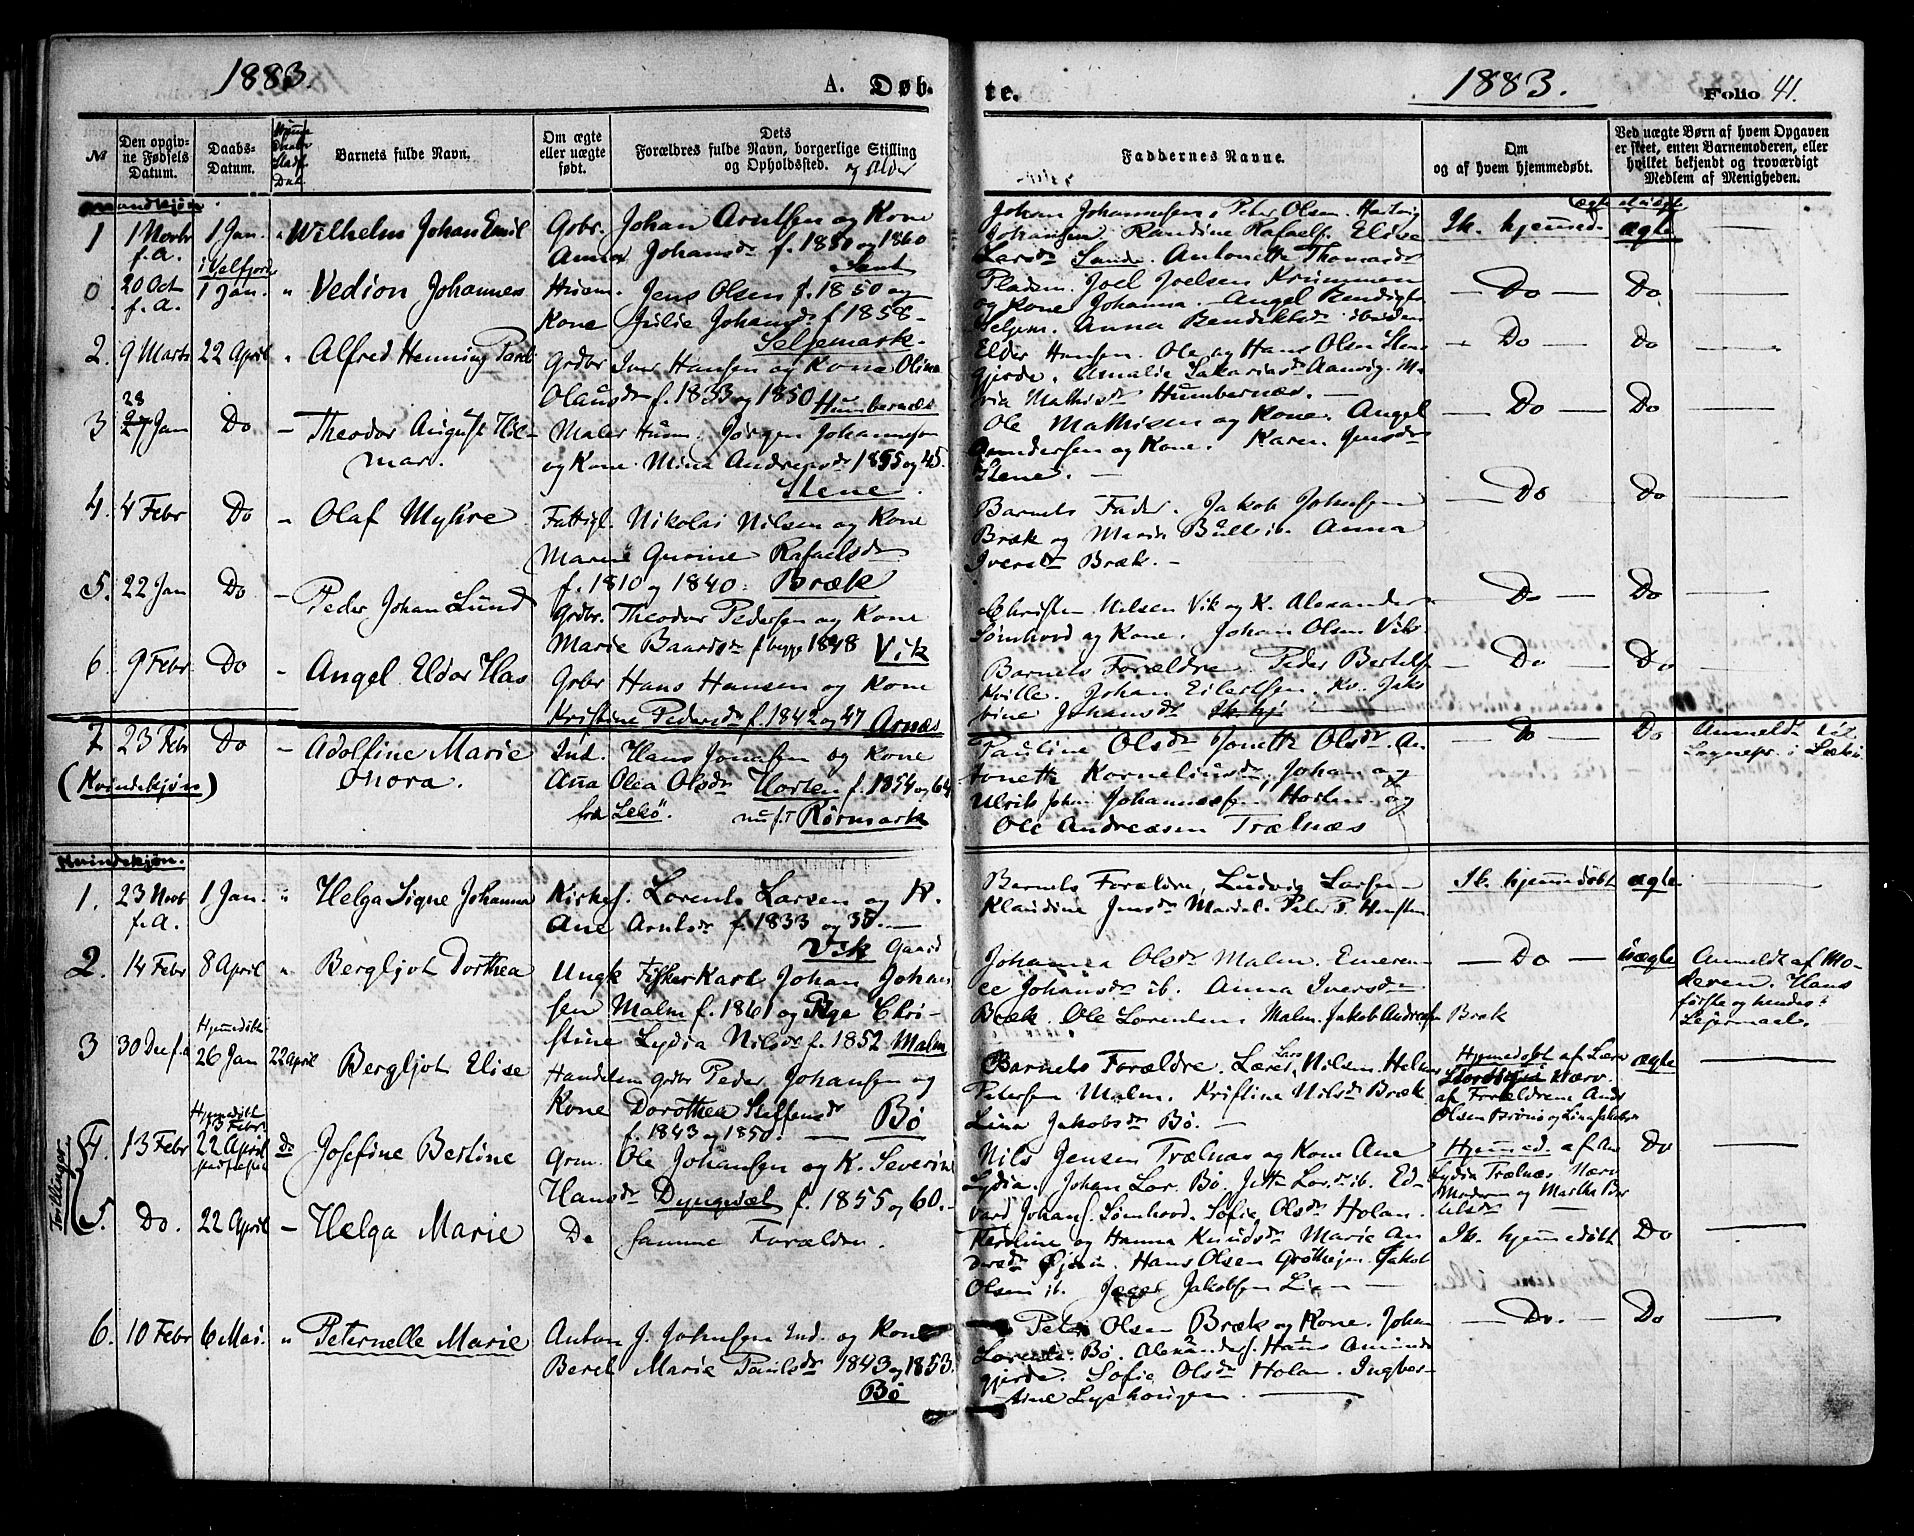 1883
A. Døb-
te.
1883.
Folio 41.
№
Den opgiv-
ne Fødsels
Datum.
Daabs-
Datum.
Barnets fulde Navn.
Om ægte
eller uægte
født.
Dets
Forældres fulde Navn, borgerlige Stilling
og Opholdssted.
og Alder
Faddernes Navne.
Om
og af hvem hjemmedøbt.
Ved uægte Børn af hvem Opgaven
er skeet, enten Barnemoderen, eller
hvilket bekjendt og troværdigt
Medlem af Menigheden.
Mandkjøn.
1 1 Novbr f.A. 1 Jan. " Wilhelm Johan Emil
Gbr. Johan Arntsen og Kone
Anna Johansdr f. 1850 og 1860
Johan Johannesen, Peter Olsen. Hartvig
Johansen Randine Rafaelsd. Elise
Larsdr Sande. Antonette Thomasdr
Ik. hjemmed. ægte
0 20 Oct f.A. i Velfjord 1 Jan. " Vedion Johannes
Husm. Jens Olsen f. 1850 og
Kone Julie Johansdr f. 1858-
Seljemark-
Pladsm. Joel Joelsen Krummen
og Kone Johanna. Angel Bendigts.
Seljem. Anna Bendiktsdr ibiden
Do Do
2. 9 Marts 22 April " Alfred Henning Parel
Grdbr Iver Hansen og Kone Olina
Olausdr f. 1833 og 1850 Humbernæs
Eldor Hansen. Ole og Hans Olsen Sten
gjerde. Amalie Sakariasdr Aunvig. M-
ria Mathisdr Humbernæs.
Do Do
3 28 27 Jan Do Theodor August Hil-
mar.
Maler Husm. Jørgen Johannesen
og Kone Mina Andreasdr 1855 og 45.
Stene.
Ole Mathisen og Kone. Angel
Andersen og Kone. Karen Jensdr
Stene.
Do Do
4. 4 Febr Do " Olaf Myhre
Fattigl. Nikolai Nilsen og Kone
Marie Gurine Rafaelsdr
f. 1810 og 1840. Bræk
Barnets Fader. Jakob Johnsen
Bræk og Maria Bull ib. Anna
Iversdr Bræk. -
Do Do
5. 22 Jan Do - Peder Johan Lund
Grdbr. Theodor Pedersen og Kone
Marie Baardsdr f. begge 1848 Vik
Christen Nilsen Vik og K. Alexander
Sømhovd og Kone. Johan Olsen Vik.
Do Do
6 9 Febr Do - Angel Eldor Has
Grbr Hans Hansen og Kone
Kristine Pedersdr f. 1842 og 47 Arnæs
Barnets Forældre Peder Bertels
Kville. Johan Eilertsen. Kv. Jak
bine Johansdr
Do Do
7 23 Febr Do - Adolfine Marie
Onora.
(Kvindekjøn)
Ind. Hans Jonassen og Kone
Ana Olea Olsdr Horten f. 1854 og 64
fra Lekø. nu f.T. Rørmark
Pauline Olsdr Jonette Olsdr. An-
tonette Korneliusdr, Johan og
Ulrik Johan Johannessen Horten og
Ole Andreasen Trælnæs
Do Do Anmeldt til
Sognepr. i Lekø.
Kvindekjøn.
1. 23 Novb f.A. 1 Jan. " Helga Signe Johanna
Kirkes. Lorents Larsen og K.
Ane Arntsdr f. 1833 og 35.
Vik Gaard
Barnets Forældre, Ludvig Larsen
Klaudine Jensdr Mardal. Peter P. Horsten
Ik. hjemmedøbt ægte
2. 14 Febr 8 April " Bergljot Dorthea
Ungk Fisker Karl Johan Johan
sen Malm f. 1861 og Pige Chri-
stine Lydia Nilsdr f. 1852 Malm
Johanna Olsdr Malm. Emeren-
ce Johansdr ib. Anna Iversdr
Bræk. Ole Lorentsen Malm. Jakob Andreasen Bræk
Do uægte Anmeldt af Mo-
deren. Hans
første og hendes
Lejermaal.
3 30 Dec f.A. Hjemmedøbt 26 Jan 22 April Bergljot Elise
Handelsm Grbr Peder Johansen og
Kone Dorothea Steffensdr
f. 1843 og 1850. Bø
Barnets Forældre. Lærer Lars Nilsen. Helmer
Petersen Malm. Kristine Nilsdr Bræk
Lina Jakobsdr Bø. -
Hjemmedøbt af Lærer
af Forældrene Ands
Olsen Brøns og Lina Jakobsen
ægte
Tvillinger
4. 13 Febr Hjemmedøbt 13 Febr. 22 April do Josefine Berline
Grm. Ole Johansen og K. Severine
Hansdr Dyngesæl f. 1855 og 60. -
Nils Jensen Trælnæs og Kone Ane
Lydia. Johan Lor. Bø. Jette Lor.dr ib. Ed-
vard Johans. Sømhovd. Sofie Olsdr Holan.
Hjemmed. af An
Lydia Trælnæs Nærv
Moderen og Martha Ber
telsdr
Do
5. Do. 22 April - Helga Marie
Do samme Forældre.
Karoline og Hanna Knudsdr Marie An
dersdr Hans Olsen
Olsen ib. Jakobsen Lien
Ik. hjemmedøbt Do
6. 10 Febr 6 Mai. " Peternelle Marie
Anton J. Johnsen Ind. og Kone
Beret Marie Paulsdr 1843 og 1853.
Bø
Peter Olsen Bræk og Kone. Johan
Lorents. Bø. Alexanders. Hans Amund
gjerde. Sofie Olsdr Holan. Ingber-
tine Lyshougen
Do. Do